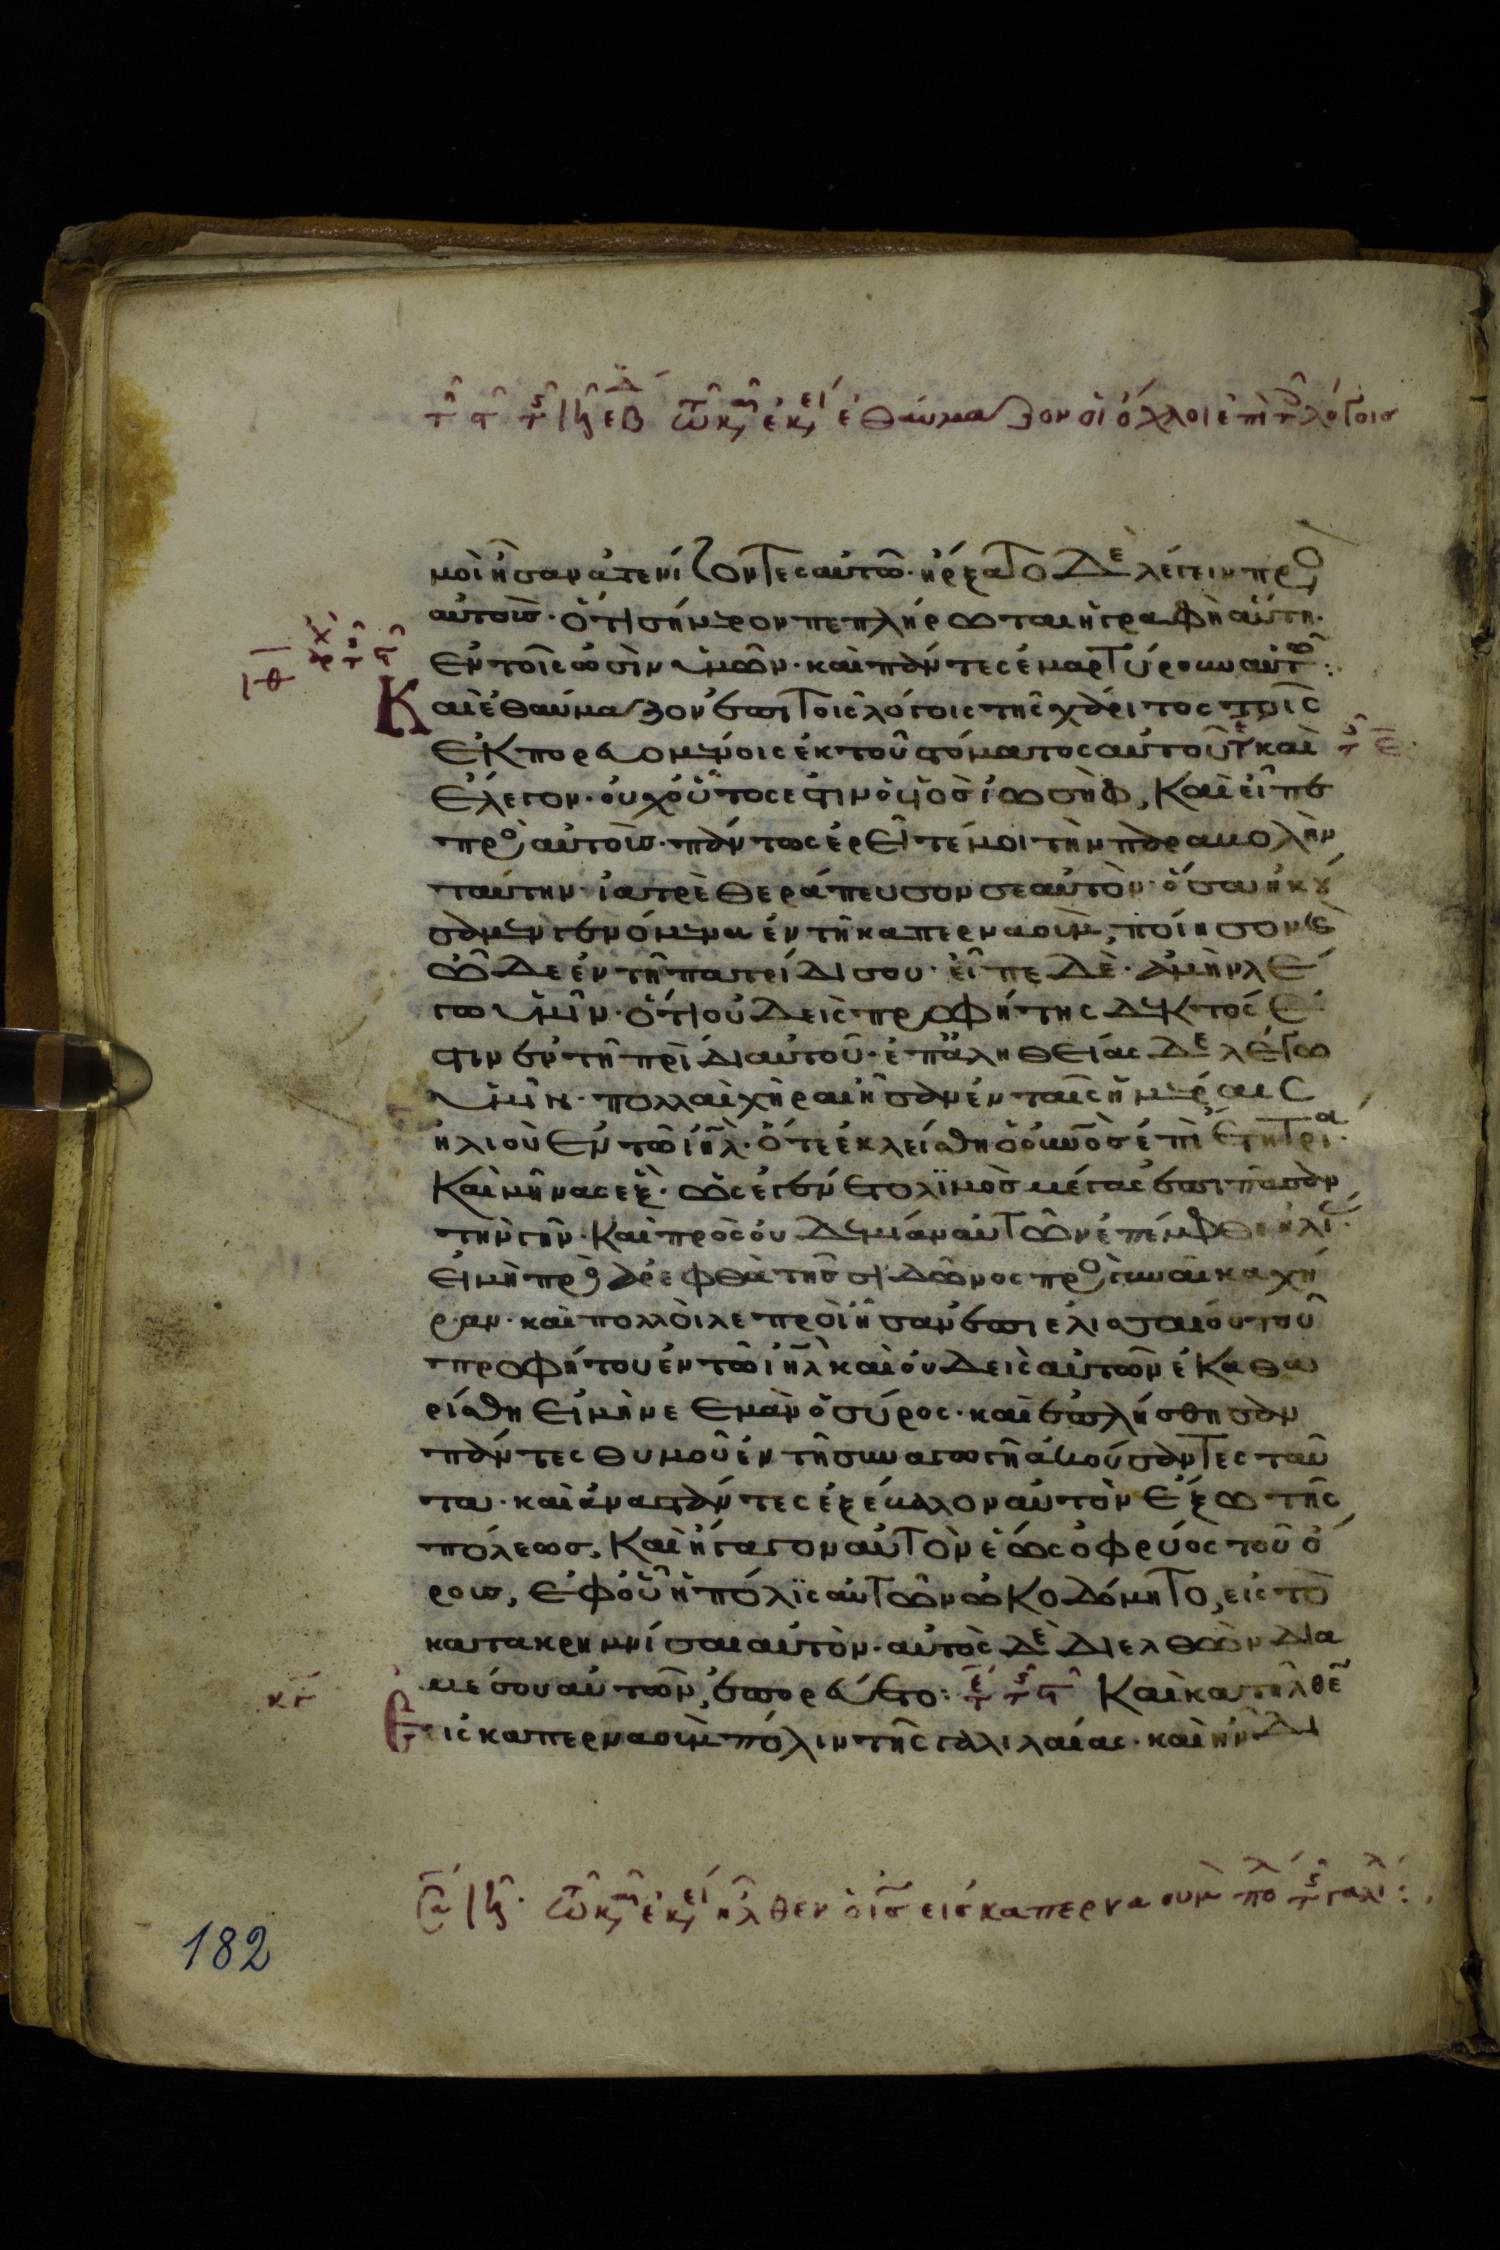 ἐθαύμαζον οἱ ὄχλοι ἐπὶ τ λόγοισ
μοὶ ἦσαν ἀτενίζοντες αὐτῶ· ἤρξατο δὲ λέγειν πρὸ
αὐτοὺσ· ὅτι σήμερον πεπλήρωται ἡ γραφὴ αὕτη·
ἐν τοῖς ὠσὶν ὑμῶν· καὶ πάντες ἐμαρτύρουν αὐτῶ:
ιθ
Καὶ ἐθαύμαζον ἐπὶ τοῖς λόγοις τῆς χάριτος τοῖς
ἐκπορευομένοις ἐκ τοῦ στόματος αὐτοῦ καὶ
ἔλεγον· οὐχ οὗτος ἐστιν ὁ υἱὸσ ἰωσὴφ, καὶ εἶπε
πρὸ αὐτοὺσ· πάντως ἐρεῖτέ μοι τὴν παραβολὴν
ταύτην· ἰατρὲ θεράπευσον σεαυτὸν· ὅσα ἠκού
σαμεν γενόμενα ἐν τῆ καπερναοὺμ, ποίησον καὶ
ὧδε ἐν τῆ πατρίδι σου· εἶπε δὲ· ἀμὴν λέ
γω ὑμῖν· ὅτι οὐδεὶς προφήτης δεκτός ἐ
στιν ἐν τῆ πρίδι αὐτοῦ· ἐπ' ἀληθείας δὲ λέγω
ὑμῖν· πολλαὶ χῆραι ἦσαν ἐν ταῖς ἡμέραις
ἠλιοὺ ἐν τῶ ιηλ· ὅτε ἐκλείσθη ὁ οὐνοσ ἐπὶ ἔτη τρία·
καὶ μῆνας ἓξ· ὡς ἐγένετο λϊμὸσ μέγας ἐπὶ πᾶσαν
τὴν γῆν· καὶ πρὸς οὐδεμίαν αὐτῶν ἐπέμφθη ἠλι·
εἰ μὴ πρὸς σάρεφθα τῆσ σιδῶνος πρὸ γυναῖκα χή
ραν· καὶ πολλοὶ λεπροὶ ἦσαν ἐπὶ ἐλισσαίου τοῦ
προφήτου ἐν τῶ ιηλ καὶ οὐδεὶς αὐτῶν ἐκαθα
ρίσθη εἰ μὴ νεεμὰν ὁ σύρος· καὶ ἐπλήσθησαν
πάντες θυμοῦ ἐν τῆ συναγωγῆ ἀκούσαντες ταῦ
τα· καὶ ἀναστάντες ἐξέβαλον αὐτὸν ἔξω τῆς
πόλεωσ, καὶ ἤγαγον αὐτὸν ἕως ὀφρύος τοῦ ὄ
ρουσ, ἐφ' οὗ ἡ πόλϊς αὐτῶν ὠκοδόμητο, εἰς τὸ
κατακρημνίσαι αὐτὸν· αὐτὸς δὲ διελθὼν δια
μέσου αὐτῶν, ἐπορεύετο: Καὶ κατῆλθε
κγ
Εἰς καπερναοὺμ πόλιν τῆς γαλιλαίας· καὶ ἦν δι
ἦλθεν ὁ ισ εἰσ καπερναουμ πό τ γαλι:
182